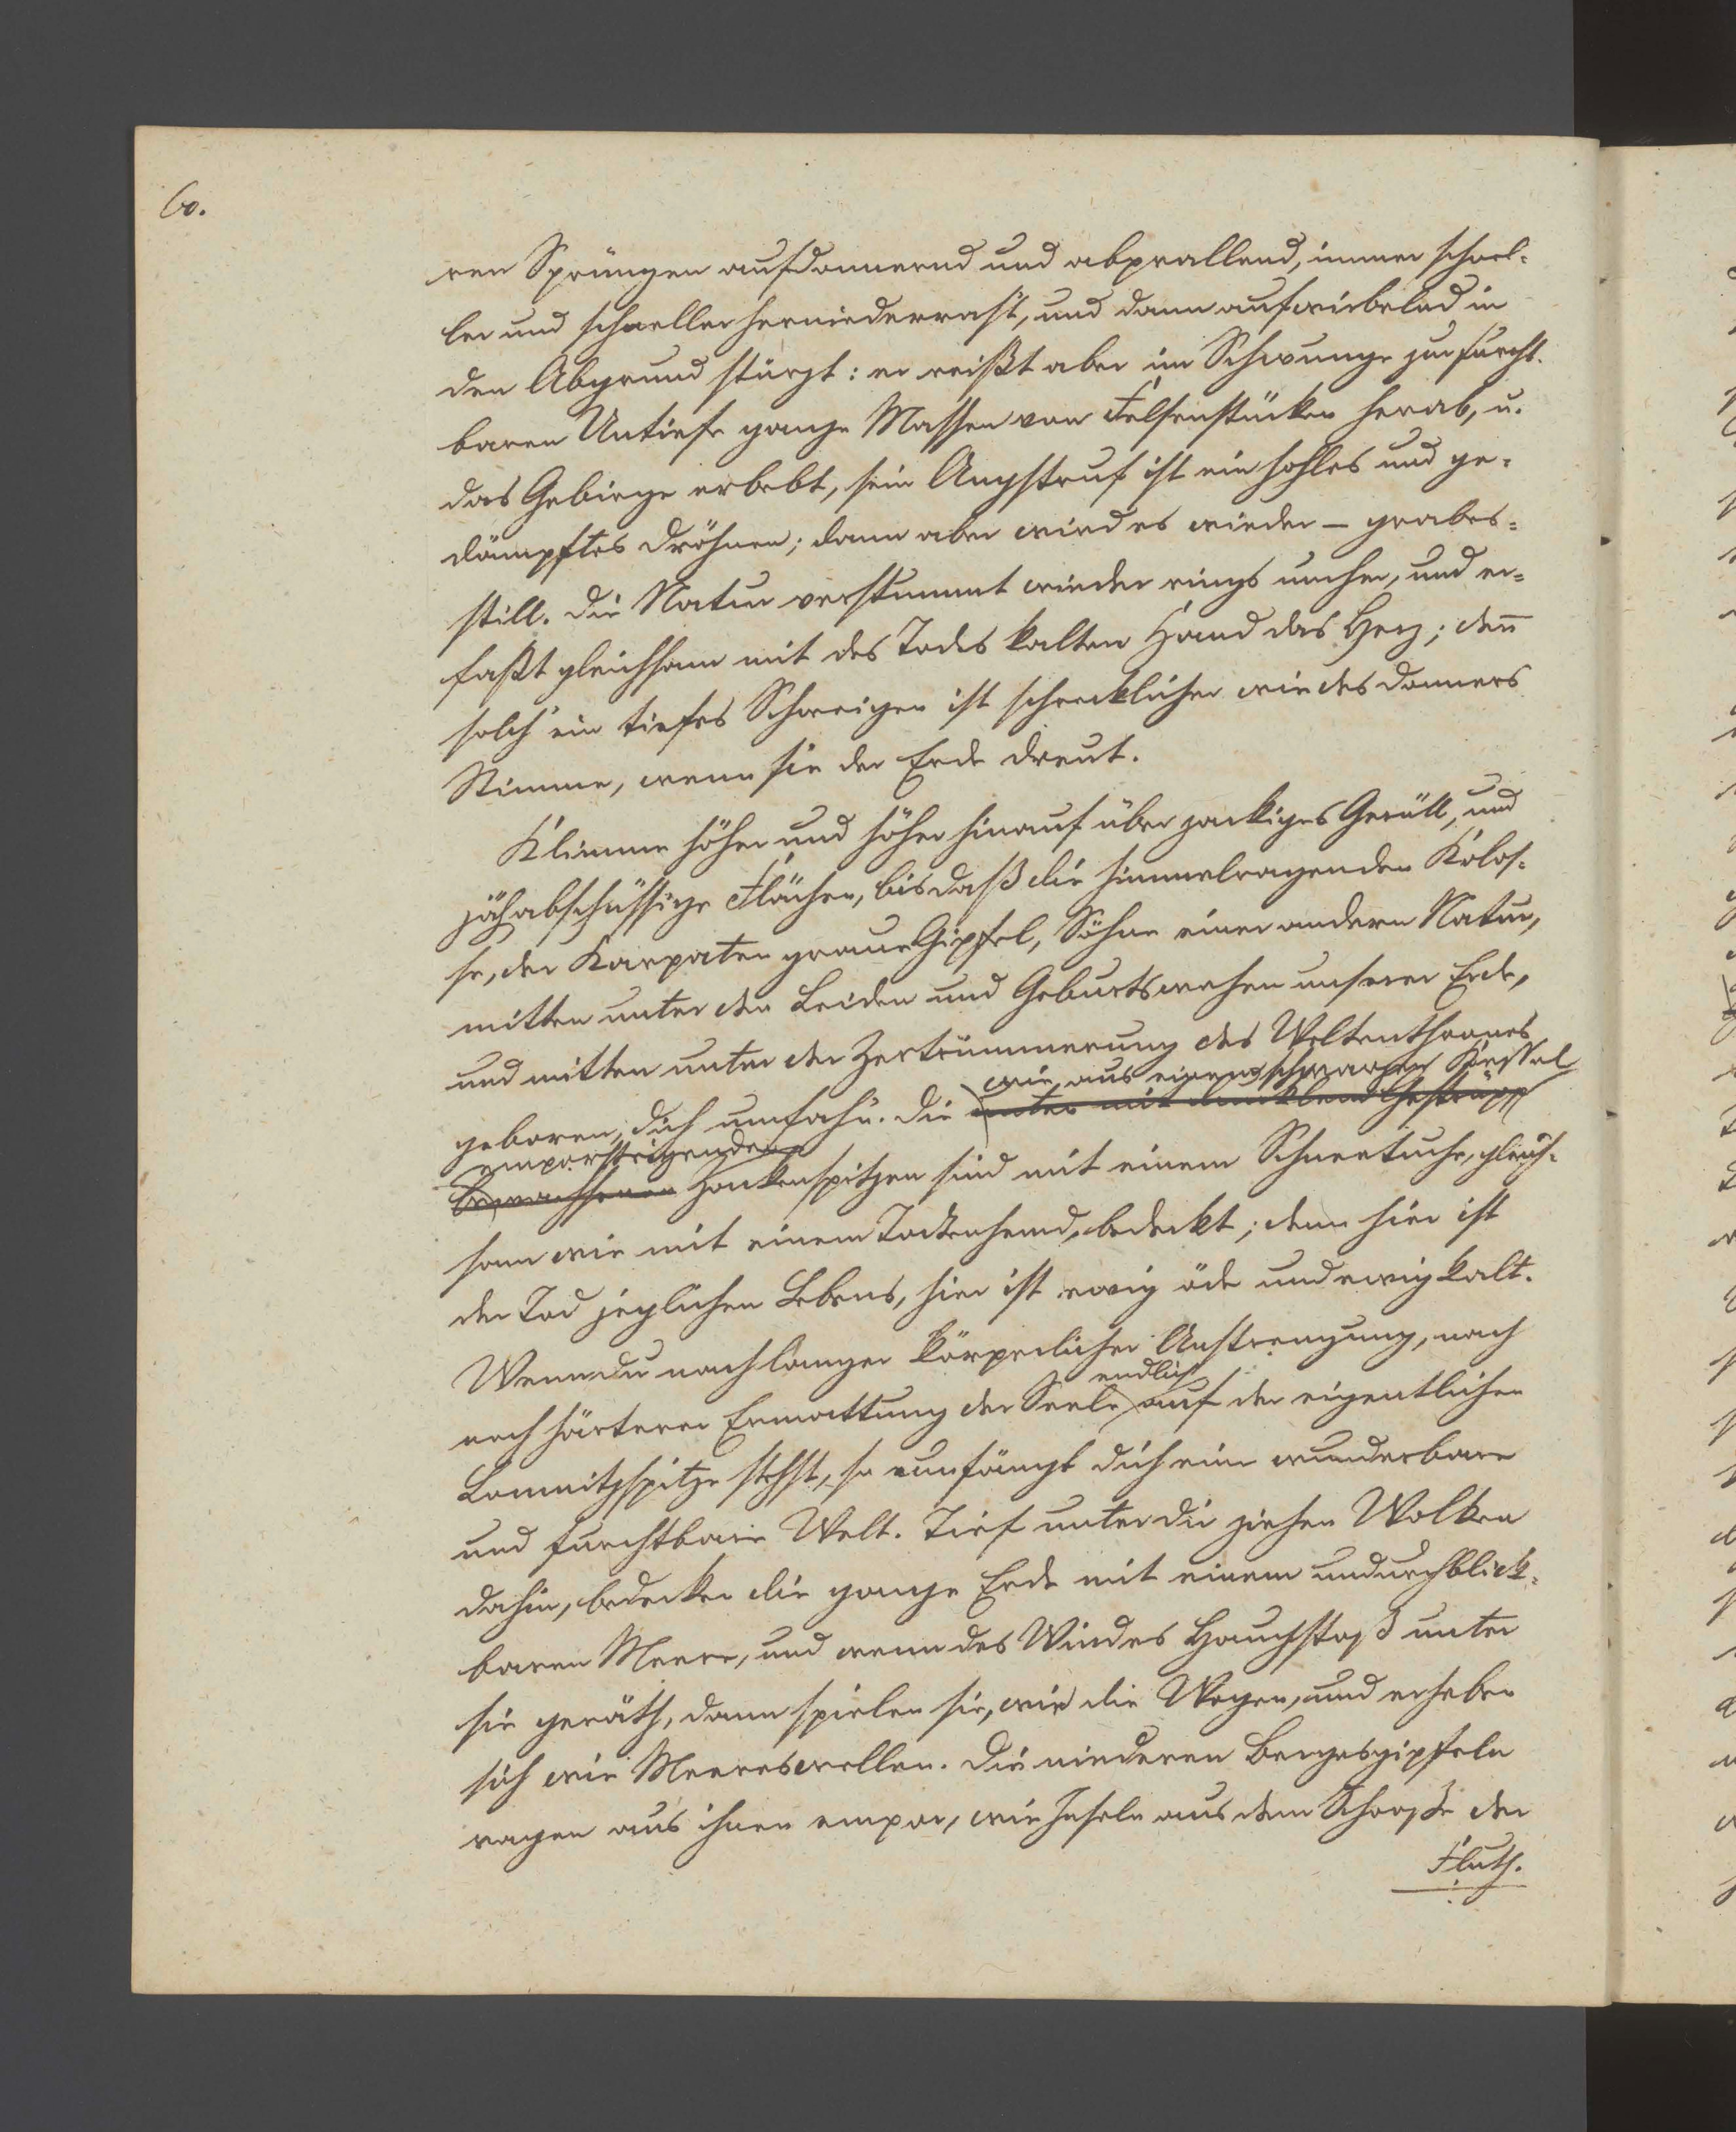 60.
ren Sprüngen aufdonnernd und abprallend, immer schnel-
ler und schneller herniederrast, und dann aufwirbelnd in
den Abgrund stürzt: er reißt aber im Schwunge zur furcht-
baren Untiefe ganze Massen von Felsenstücken herab, u.
das Gebirge erbebt, sein Angstruf ist ein hohles und ge-
dämpftes Dröhnen; dann aber wird es wieder – grabes-
still. Die Natur verstummt wieder rings umher, und er-
faßt gleichsam mit des Todes kalter Hand das Herz; deñ
solch' ein tiefes Schweigen ist schrecklicher wie des Donners
Stimme, wenn sie der Erde dreut.
Klimme höher und höher hinauf über zackiges Geröll, und
jäh abschüssige Flächen, bis daß die himmelragenden Kolos-
se, der Karpaten graue Gipfel, Söhne einer andern Natur,
mitten unter den Leiden und Geburtswehen unserer Erde,
und mitten unter der Zertrümmerung des Weltenthrones
wie aus einem schwarzen Kessel
geboren, dich umfah'n. Die unten mit dunklem Gestrüpp
emporsteigenden
bewachsenen Zackenspitzen sind mit einem Schneetuche, gleich-
sam wie mit einem Todtenhemd, bedeckt; denn hier ist
der Tod jeglichen Lebens, hier ist ewig öde und ewig kalt.
Wenn du nach langer körperlicher Anstrengung, nach
endlich
noch härterer Ermattung der Seele auf der eigentlichen
Lomnitzspitze stehst, so umfängt dich eine wunderbare
und furchtbare Welt. Tief unter dir ziehen Wolken
dahin, bedecken die ganze Erde mit einem undurchblick-
baren Meere, und wenn des Windes Hauchstoß unter
sie geräth, dann spielen sie, wie die Wogen, und erheben
sich wie Meereswellen. Die niederen Bergesgipfeln
ragen aus ihnen empor, wie Inseln aus dem Schooße der
Fluth.